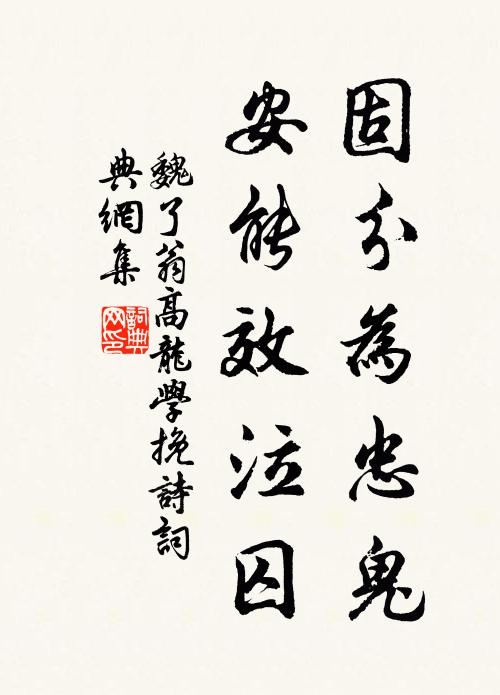 固分為忠鬼
安能效泣囚
魏了翁高龍學挽詩詞
典網集
詞典
网印